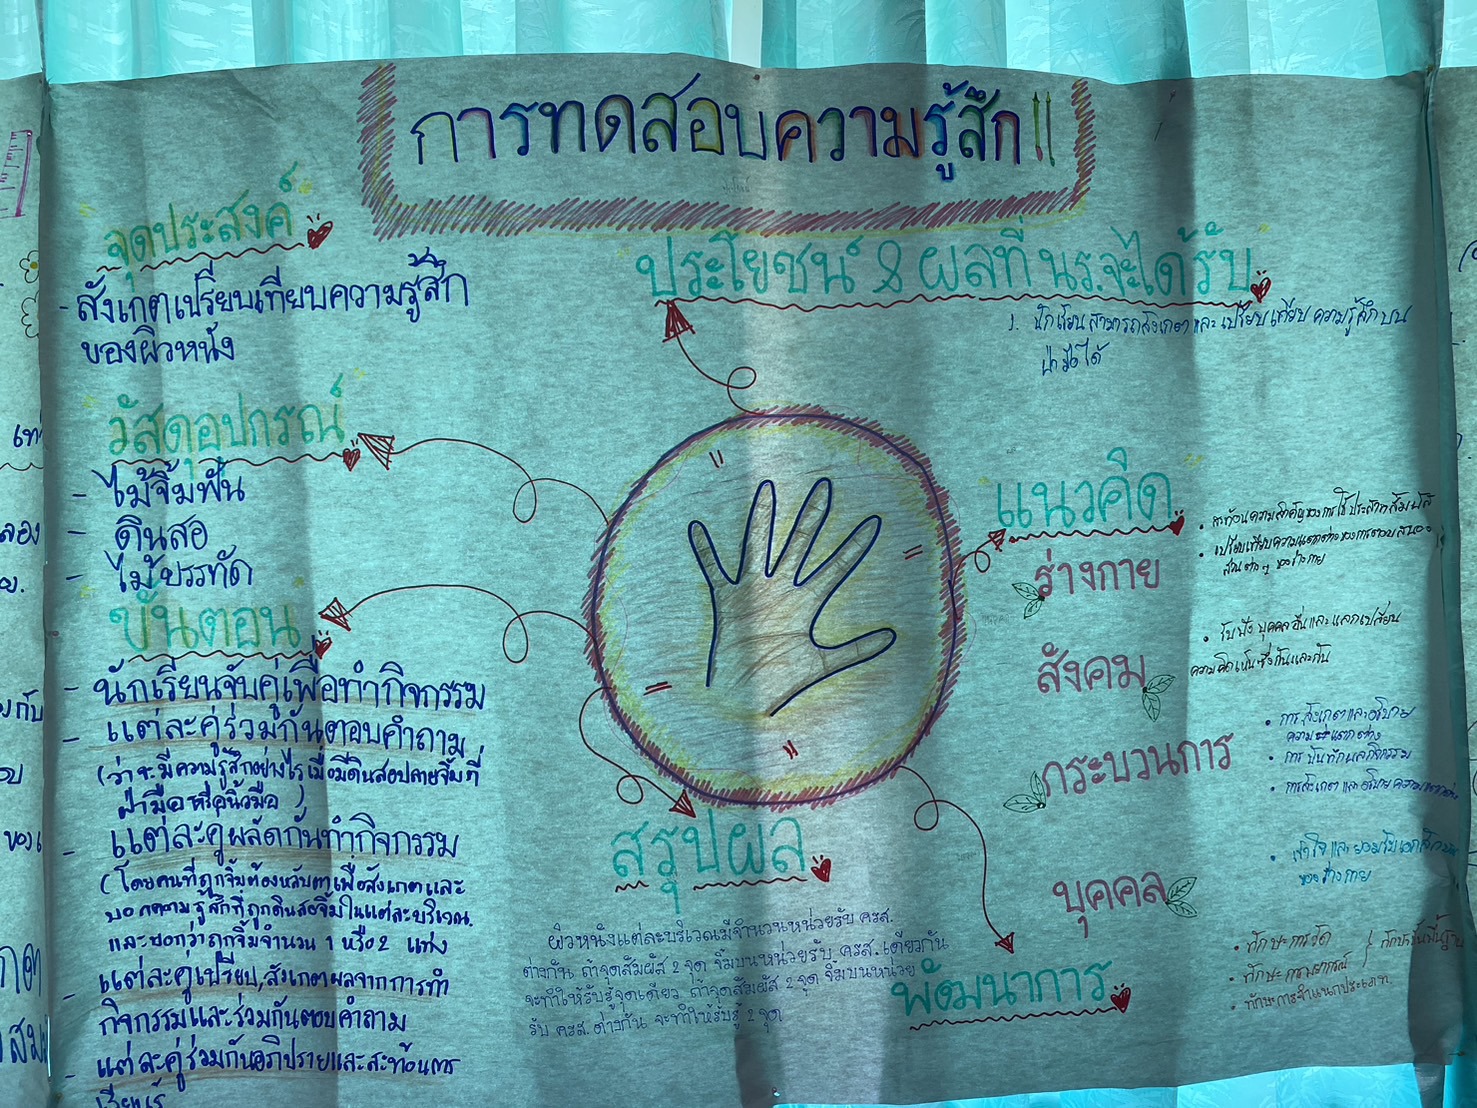 การทดสอบความรู้สึก !!
จุดประสงค์
- สังเกตเปรียบเทียบความรู้สึก
ของผิวหนัง
วัสดุอุปกรณ์
- ไม้จิ้มฟัน
- ดินสอ
- ไม้บรรทัด
ขั้นตอน
- นักเรียนจับคู่เพื่อทำกิจกรรม
- แต่ละคู่ร่วมกันตอบคำถาม
(ว่าจะมีความรู้สึกอย่างไรเมื่อมีดินสอปลายจิ้มที่
ฝ่ามือหรือนิ้วมือ)
- แต่ละคู่ผลัดกันทำกิจกรรม
(โดยคนที่ถูกจิ้มต้องหลับตาเพื่อสังเกตและ
บอกความรู้สึกที่ถูกดินสอจิ้มในแต่ละบริเวณ
และบอกว่าถูกจิ้มจำนวน 1 หรือ 2 แท่ง
- แต่ละคู่เปรียบ,สังเกตผลจากการทำ
กิจกรรมและร่วมกันตอบคำถาม
- แต่ละคู่ร่วมกันอภิปรายและสะท้อนการ
เรียนรู้
ประโยชน์ & ผลที่ นร.จะได้รับ
1. นักเรียนสามารถสังเกตและเปรียบเทียบความรู้สึกบน
ฝ่ามือได้
แนวคิด
ร่างกาย
• สะท้อนความสำคัญของการใช้ประสาทสัมผัส
• เปรียบเทียบความแตกต่างของการตอบสนอง
ส่วนต่างๆ ของร่างกาย
สังคม
• รับฟังบุคคลอื่นและแลกเปลี่ยน
ความคิดเห็นซึ่งกันและกัน
กระบวนการ
• การสังเกตและอธิบาย
ความแตกต่าง
• การบันทึกผลกิจกรรม
• การสังเกตและอธิบายความแตกต่าง
บุคคล
• เข้าใจและยอมรับ
ของร่างกาย
สรุปผล
ผิวหนังแต่ละบริเวณมีจำนวนหน่วยรับ ครส.
ต่างกัน ถ้าจุดสัมผัส 2 จุด จิ้มบนหน่วยรับ ครส. เดียวกัน
จะทำให้รับรู้จุดเดียว ถ้าจุดสัมผัส 2 จุด จิ้มบนหน่วย
รับ ครส. ต่างกัน จะทำให้รับรู้ 2 จุด
พัฒนาการ
• ทักษะการวัด
• ทักษะการพยากรณ์
• ทักษะการจำแนกประเภท